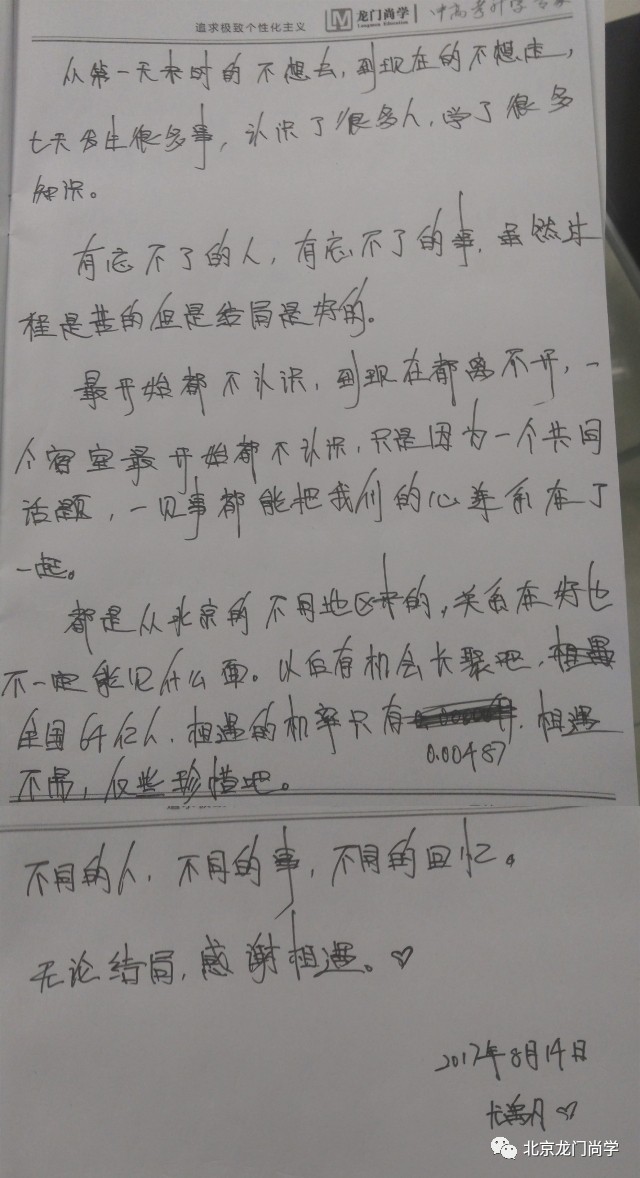 追求极致个性化主义 龙门尚学 中高考升学专家
从第一天来时的不想去，到现在的不想走，
七天发生很多事，认识了很多人，学了很多
知识。
有忘不了的人，有忘不了的事，虽然过
程是苦的但是结局是好的。
最开始都不认识，到现在都离不开，一
个宿室最开始都不认识，只是因为一个共同
话题，一见事都能把我们的心连系在了
一起。
都是从北京的不同地区来的，关系在好也
不一定能见什么面。以后有机会长聚吧，
全国64亿人，相遇的机率只有
0.00487
相遇
不易，仅些珍惜吧。
不同的人，不同的事，不同的回忆。
无论结局，感谢相遇。♡
2017年8月14日
♡
北京龙门尚学